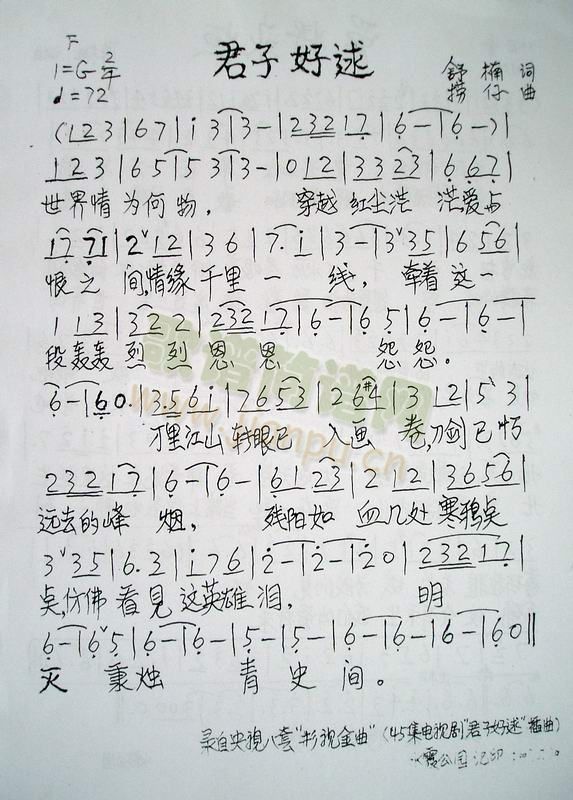 君子好逑
F
1=G 2/4
♩=72
舒楠 词
捞仔 曲
(1 2 3|6 7|i 3|3-|2 3 2 1 7|6-|6-)|
1 2 3|6 5|5 3|3-|0 1 2|3 3 2 3|6 6 7|
世界情为何物, 穿越红尘浩茫爱与
1 7 7 1|2ˇ1 2|3 6|7. i|3-|3ˇ3 5|6 5 6|
恨之间,情缘千里一线, 牵着这一
1 1 3|3 2 2|2 3 2 1 7|6-|6 5|6-|6-|
段轰轰烈烈恩恩 怨怨。
6-|6 0.|3 5 6 i|7 6 5 3|2 6 #4|3 1 2|5ˇ3|
万里江山转眼已入画卷,刀剑已忘
2 3 2 1 7|6-|6-|6 1 2 3|2 1 2|3 6 5 6|
远去的峰烟, 残阳如血几处寒鸦点
3ˇ3 5|6. 3|i 7 6|2-|2-|2 0|2 3 2 1 7|
点,仿佛看見这英雄泪, 明
6-|6ˇ5|6-|6-|5-|5-|6-|6-|6-|6 0‖
灭秉烛青史间。
录自央视八套"影视金曲"(45集电视剧"君子好逑"插曲)
霞公园记印
歌谱简谱网
www.jianpu.cn